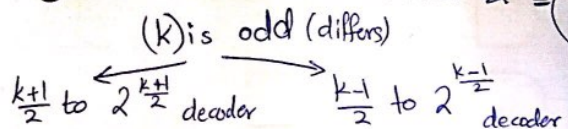 (k) is odd (differs)
(k+1)/2 to 2^((k+1)/2) decoder (k-1)/2 to 2^((k-1)/2) decoder